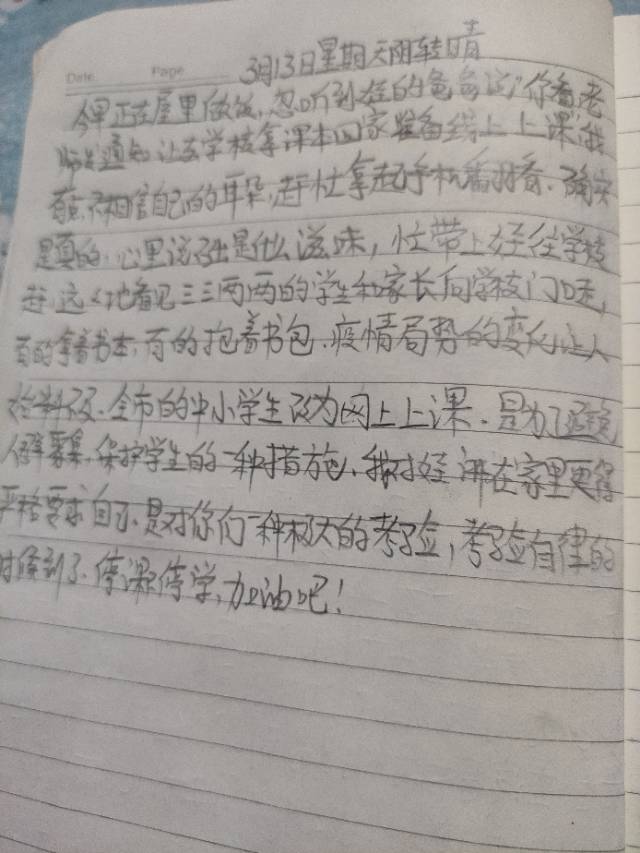 Date Page
3月13日星期天阴转晴
今早正在屋里做饭,忽听到娃的爸爸说:"你看老
师发通知让去学校拿课本回家准备线上上课"我
有点不相信自己的耳朵,赶忙拿起手机翻看、确实
是真的,心里说不出是什么滋味,忙带上娃往学校
赶,远远地看见三三两两的学生和家长向学校门口走,
有的拿着书本,有的抱着书包、疫情局势的变化让人
措手不及、全市的中小学生改为网上上课、是为了避免
人群聚集,保护学生的一种措施、我对娃讲在家里更得
严格要求自己、是对你们一种极大的考验,考验自律的
时候到了、停课不停学,加油吧!